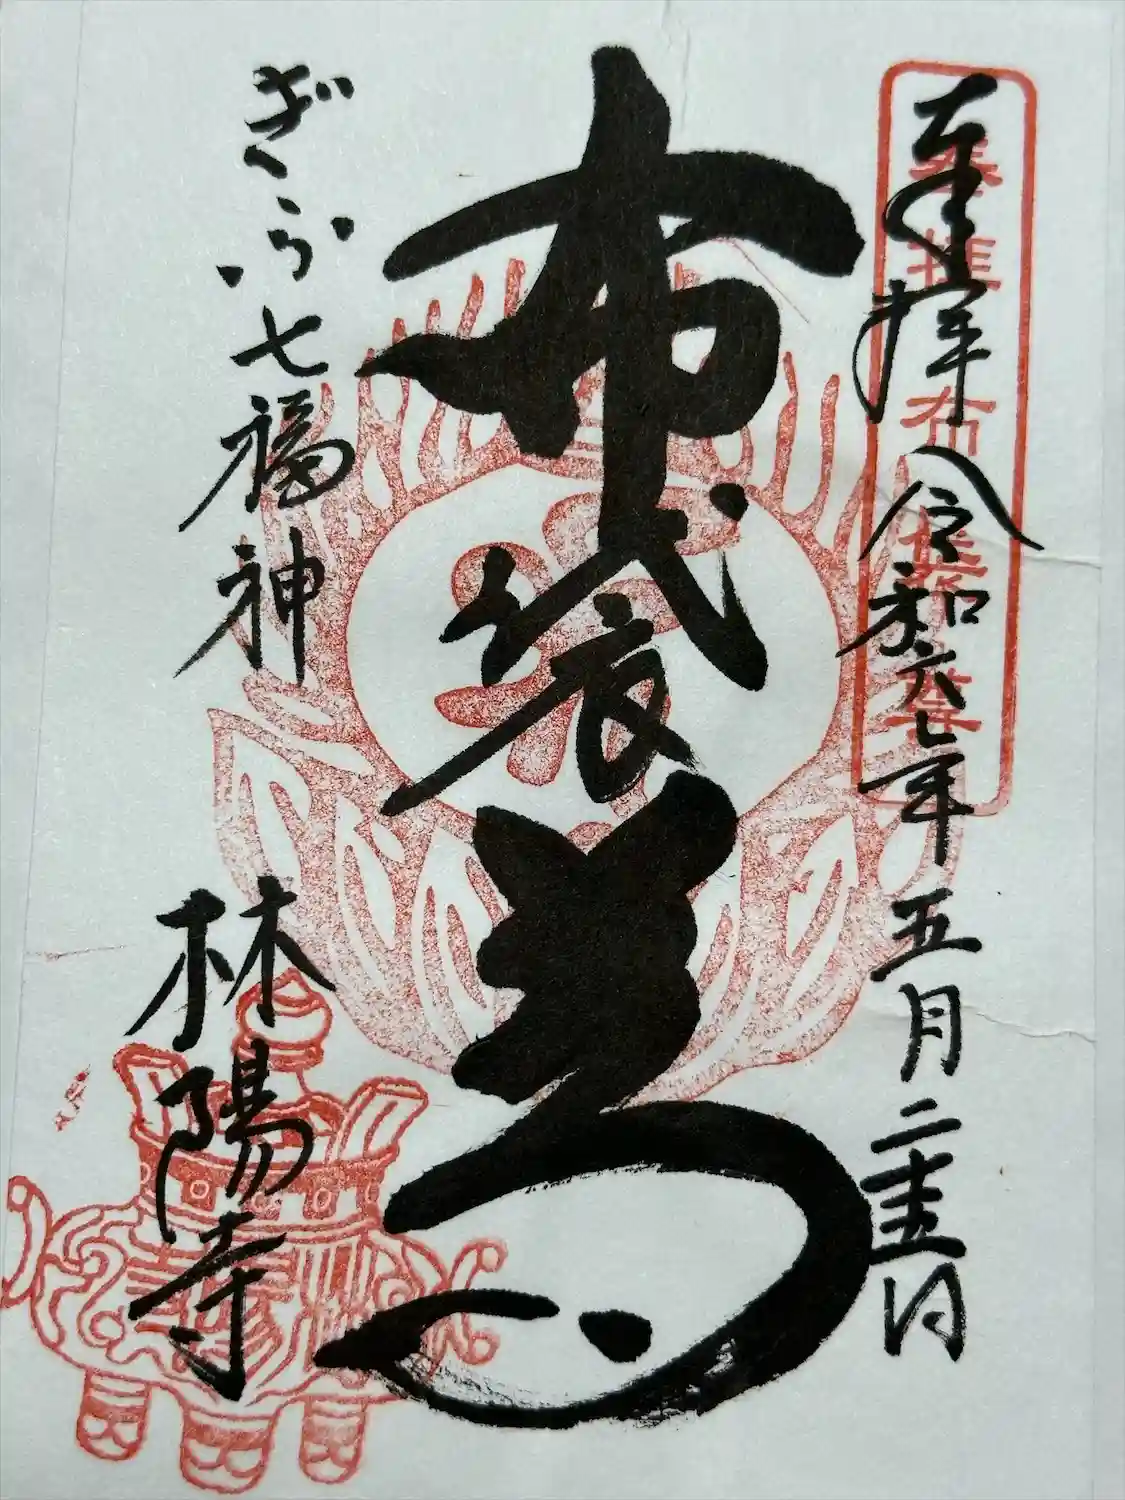 奉拝 令和六七年五月二十五日
布袋尊
ぎふ七福神 林陽寺